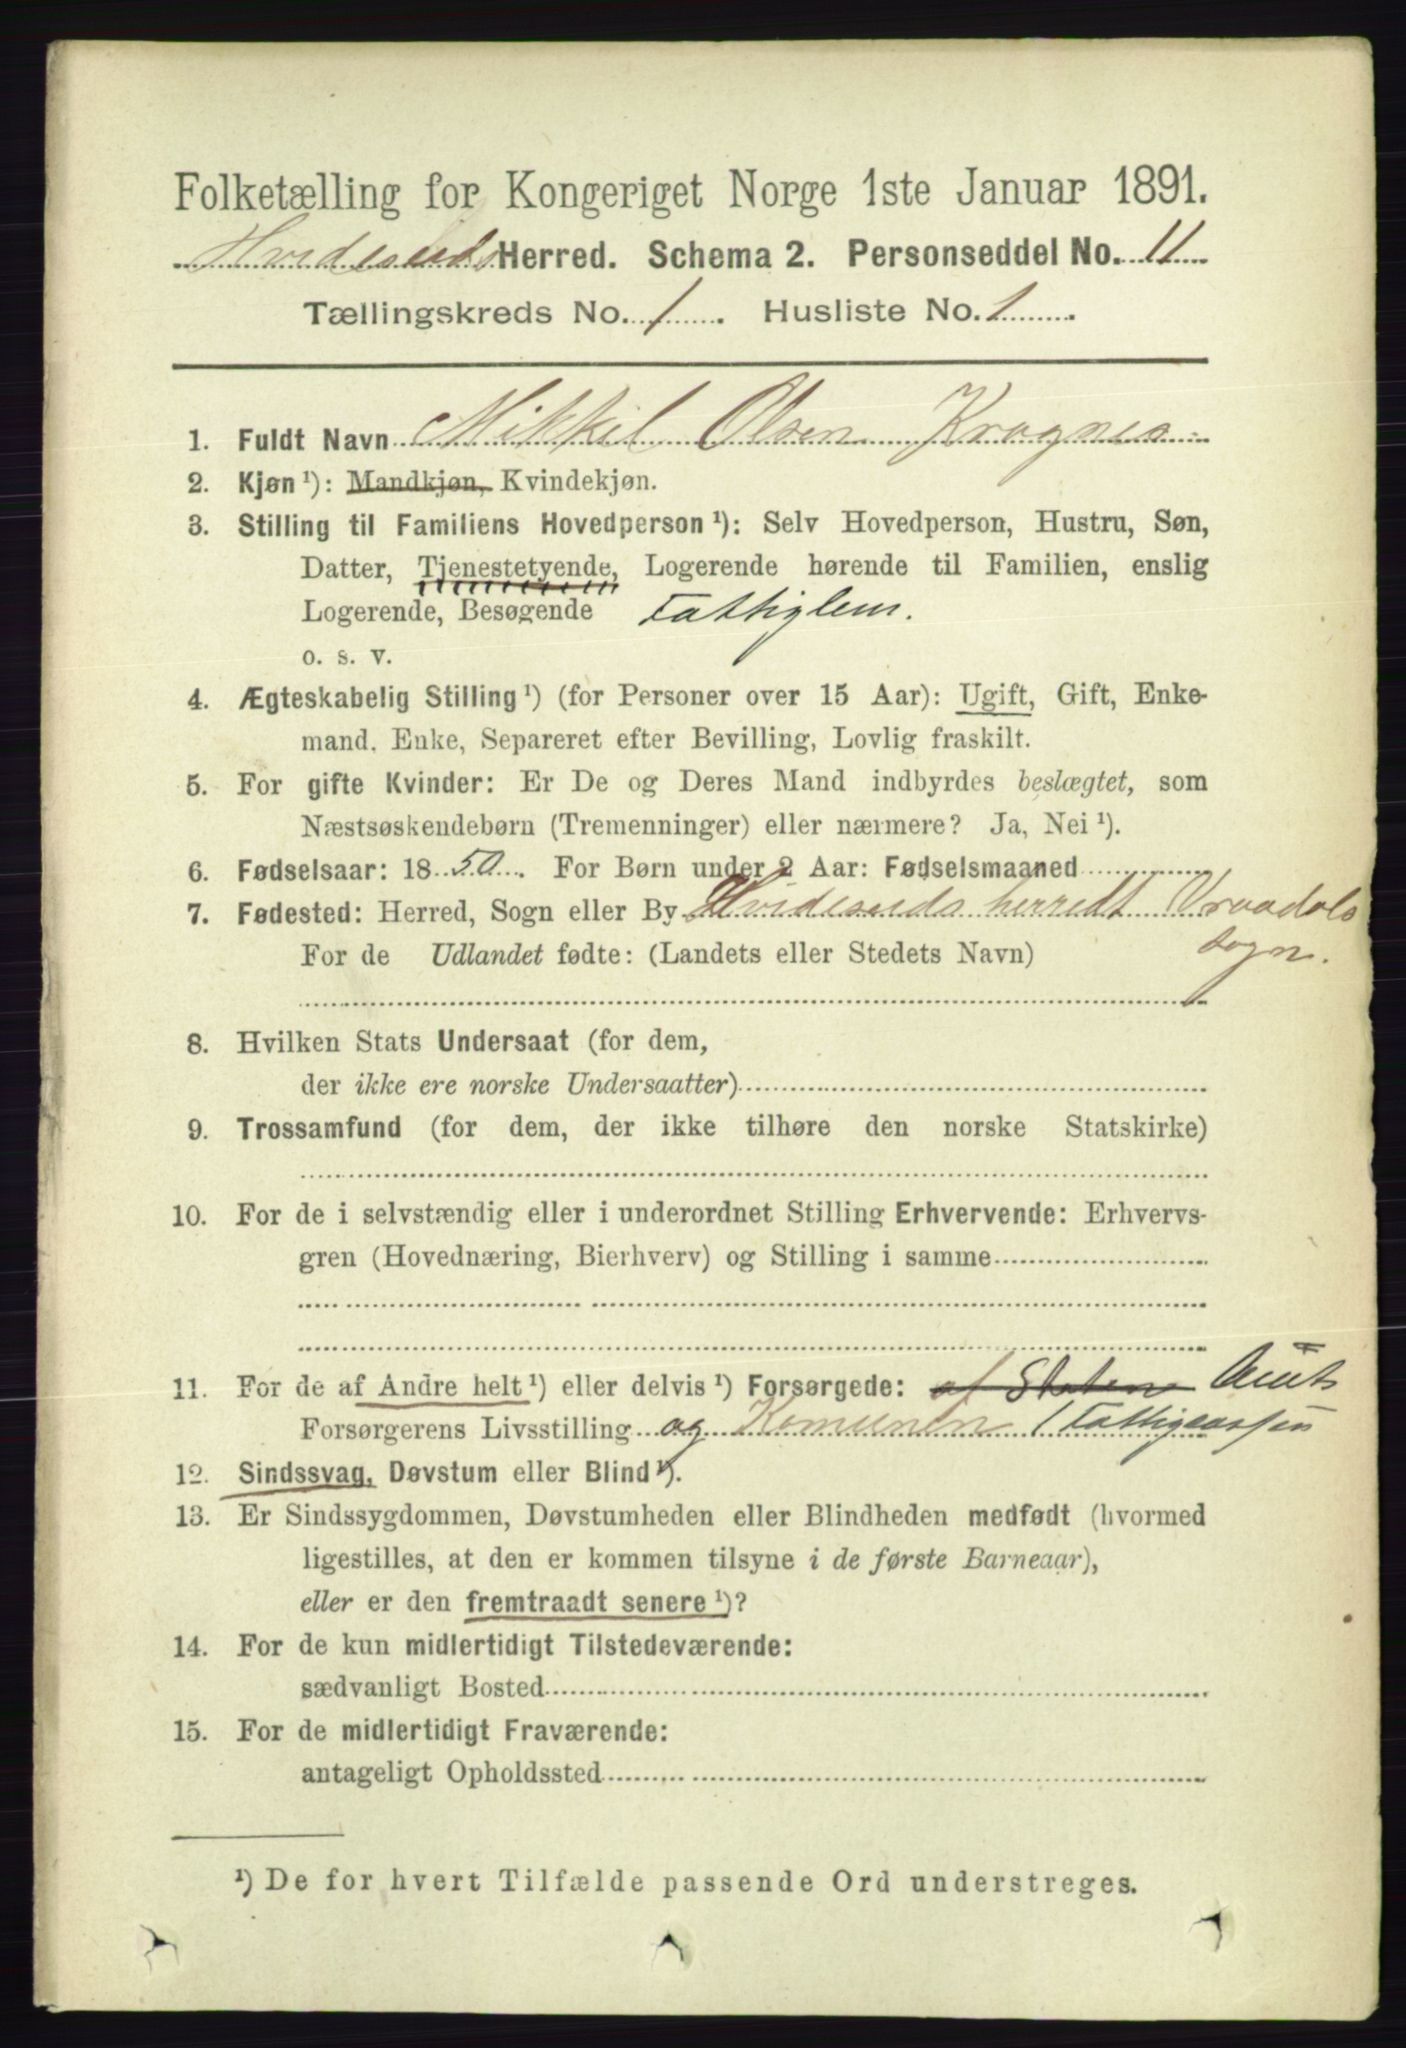 Folketælling for Kongeriget Norge 1ste Januar 1891.
Hvideseids Herred. Schema 2. Personseddel No. 11
Tællingskreds No. 1. Husliste No. 1
1. Fuldt Navn Mikkel Olsen Kragnes
2. Kjøn ¹): Mandkjøn, Kvindekjøn.
3. Stilling til Familiens Hovedperson ¹): Selv Hovedperson, Hustru, Søn,
Datter, Tjenestetyende, Logerende hørende til Familien, enslig
Logerende, Besøgende Fattiglem.
o. s. v.
4. Ægteskabelig Stilling ¹) (for Personer over 15 Aar): Ugift, Gift, Enke-
mand, Enke, Separeret efter Bevilling, Lovlig fraskilt.
5. For gifte Kvinder: Er De og Deres Mand indbyrdes beslægtet, som
Næstsøskendebørn (Tremenninger) eller nærmere? Ja, Nei ¹).
6. Fødselsaar: 1850. For Børn under 2 Aar: Fødselsmaaned
7. Fødested: Herred, Sogn eller By Hvideseids herredt Vraadals
For de Udlandet fødte: (Landets eller Stedets Navn) sogn.
8. Hvilken Stats Undersaat (for dem,
der ikke ere norske Undersaatter)
9. Trossamfund (for dem, der ikke tilhøre den norske Statskirke)
10. For de i selvstændig eller i underordnet Stilling Erhvervende: Erhvervs-
gren (Hovednæring, Bierhverv) og Stilling i samme
11. For de af Andre helt ¹) eller delvis ¹) Forsørgede: af Staten Amts
Forsørgerens Livsstilling og Komunen
12. Sindssvag, Døvstum eller Blind ¹).
13. Er Sindssygdommen, Døvstumheden eller Blindheden medfødt (hvormed
ligestilles, at den er kommen tilsyne i de første Barneaar),
eller er den fremtraadt senere ¹)?
14. For de kun midlertidigt Tilstedeværende:
sædvanligt Bosted
15. For de midlertidigt Fraværende:
antageligt Opholdssted
¹) De for hvert Tilfælde passende Ord understreges.